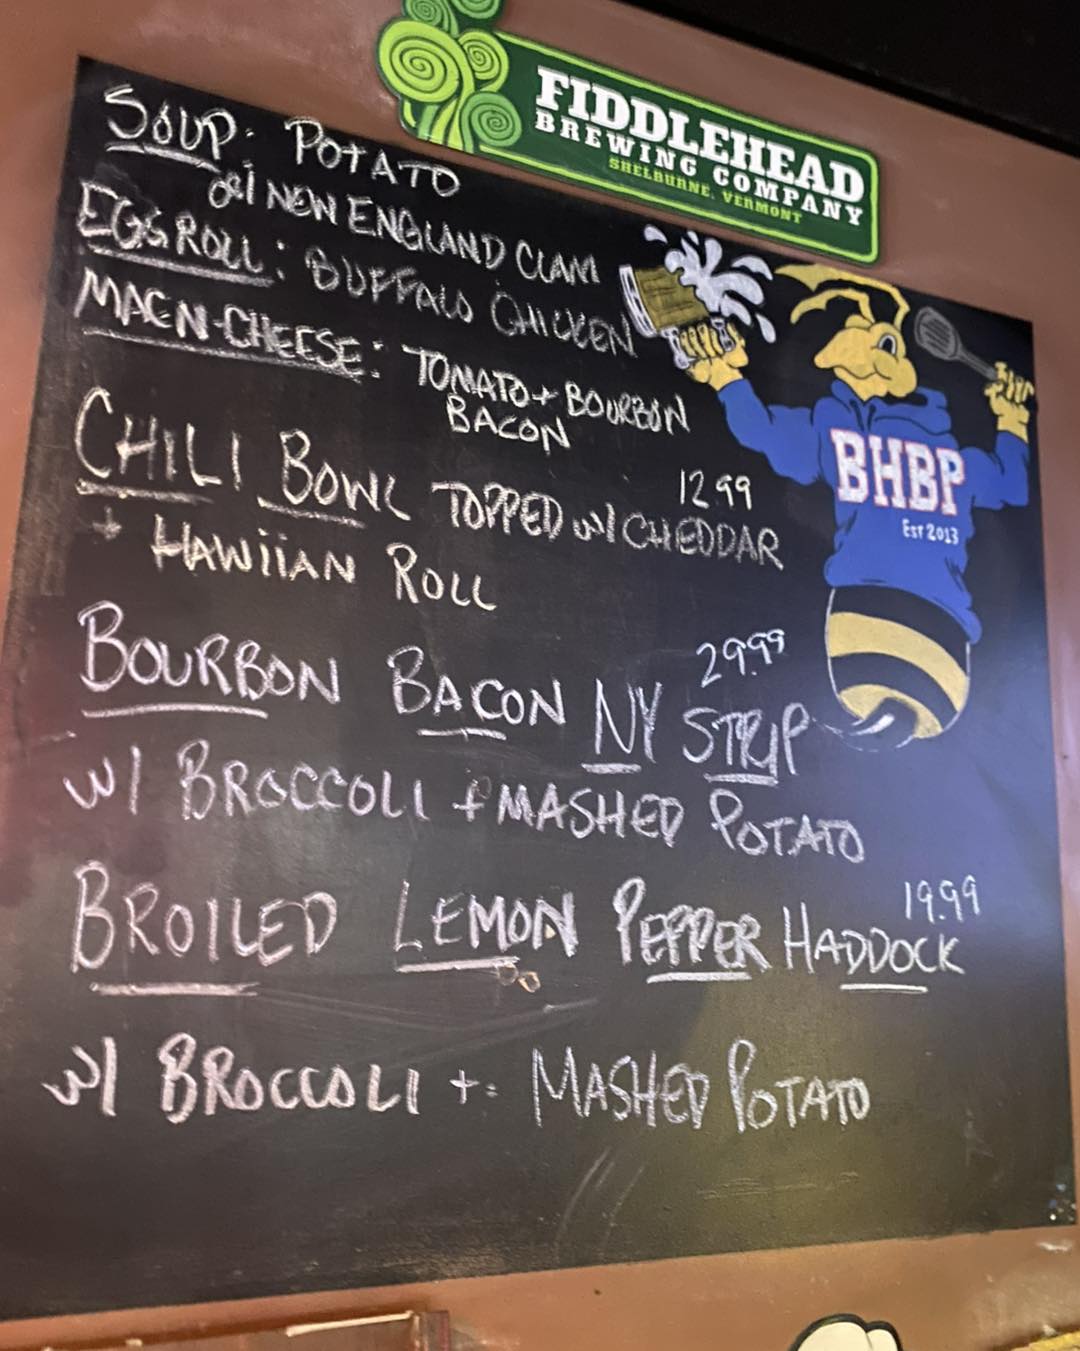 FIDDLEHEAD
BREWING COMPANY
SHELBURNE, VERMONT
SOUP: POTATO
or NEW ENGLAND CLAM
EGG ROLL: BUFFALO CHICKEN
MAC-N-CHEESE: TOMATO + BOURBON
BACON
CHILI BOWL TOPPED W/ CHEDDAR 12.99
+ HAWIIAN ROLL
BOURBON BACON NY STRIP 29.99
W/ BROCCOLI + MASHED POTATO
BROILED LEMON PEPPER HADDOCK 19.99
W/ BROCCOLI + MASHED POTATO
BHBP
EST 2013